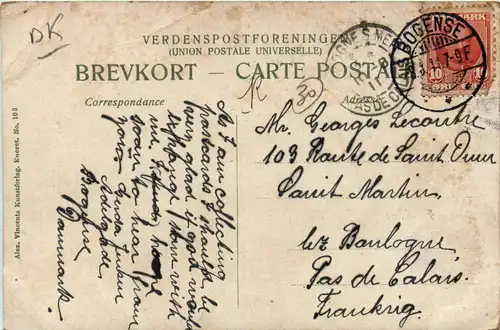 DK
VERDENSPOSTFORENINGEN
(UNION POSTALE UNIVERSELLE)
BREVKORT — CARTE POSTALE
Correspondance
BOGENSE
7-9F
10
PAS DE CALAIS
30
Alex. Vincents Kunstforlag, Eneret. No. 103
As I am collecting
postcards I should be
very glad if you would
exchange them with
me. I hope
soon to hear from
yours
Adelgade
Bogense
Danmark.
Mr. Georges Lecointre
103 Route de Saint Omer
Saint Martin,
lez Boulogne,
Pas de Calais.
Frankrig.